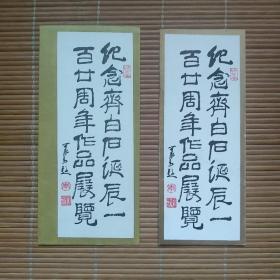 纪念齐白石诞辰一
百廿周年作品展覽
纪念齐白石诞辰一
百廿周年作品展覽